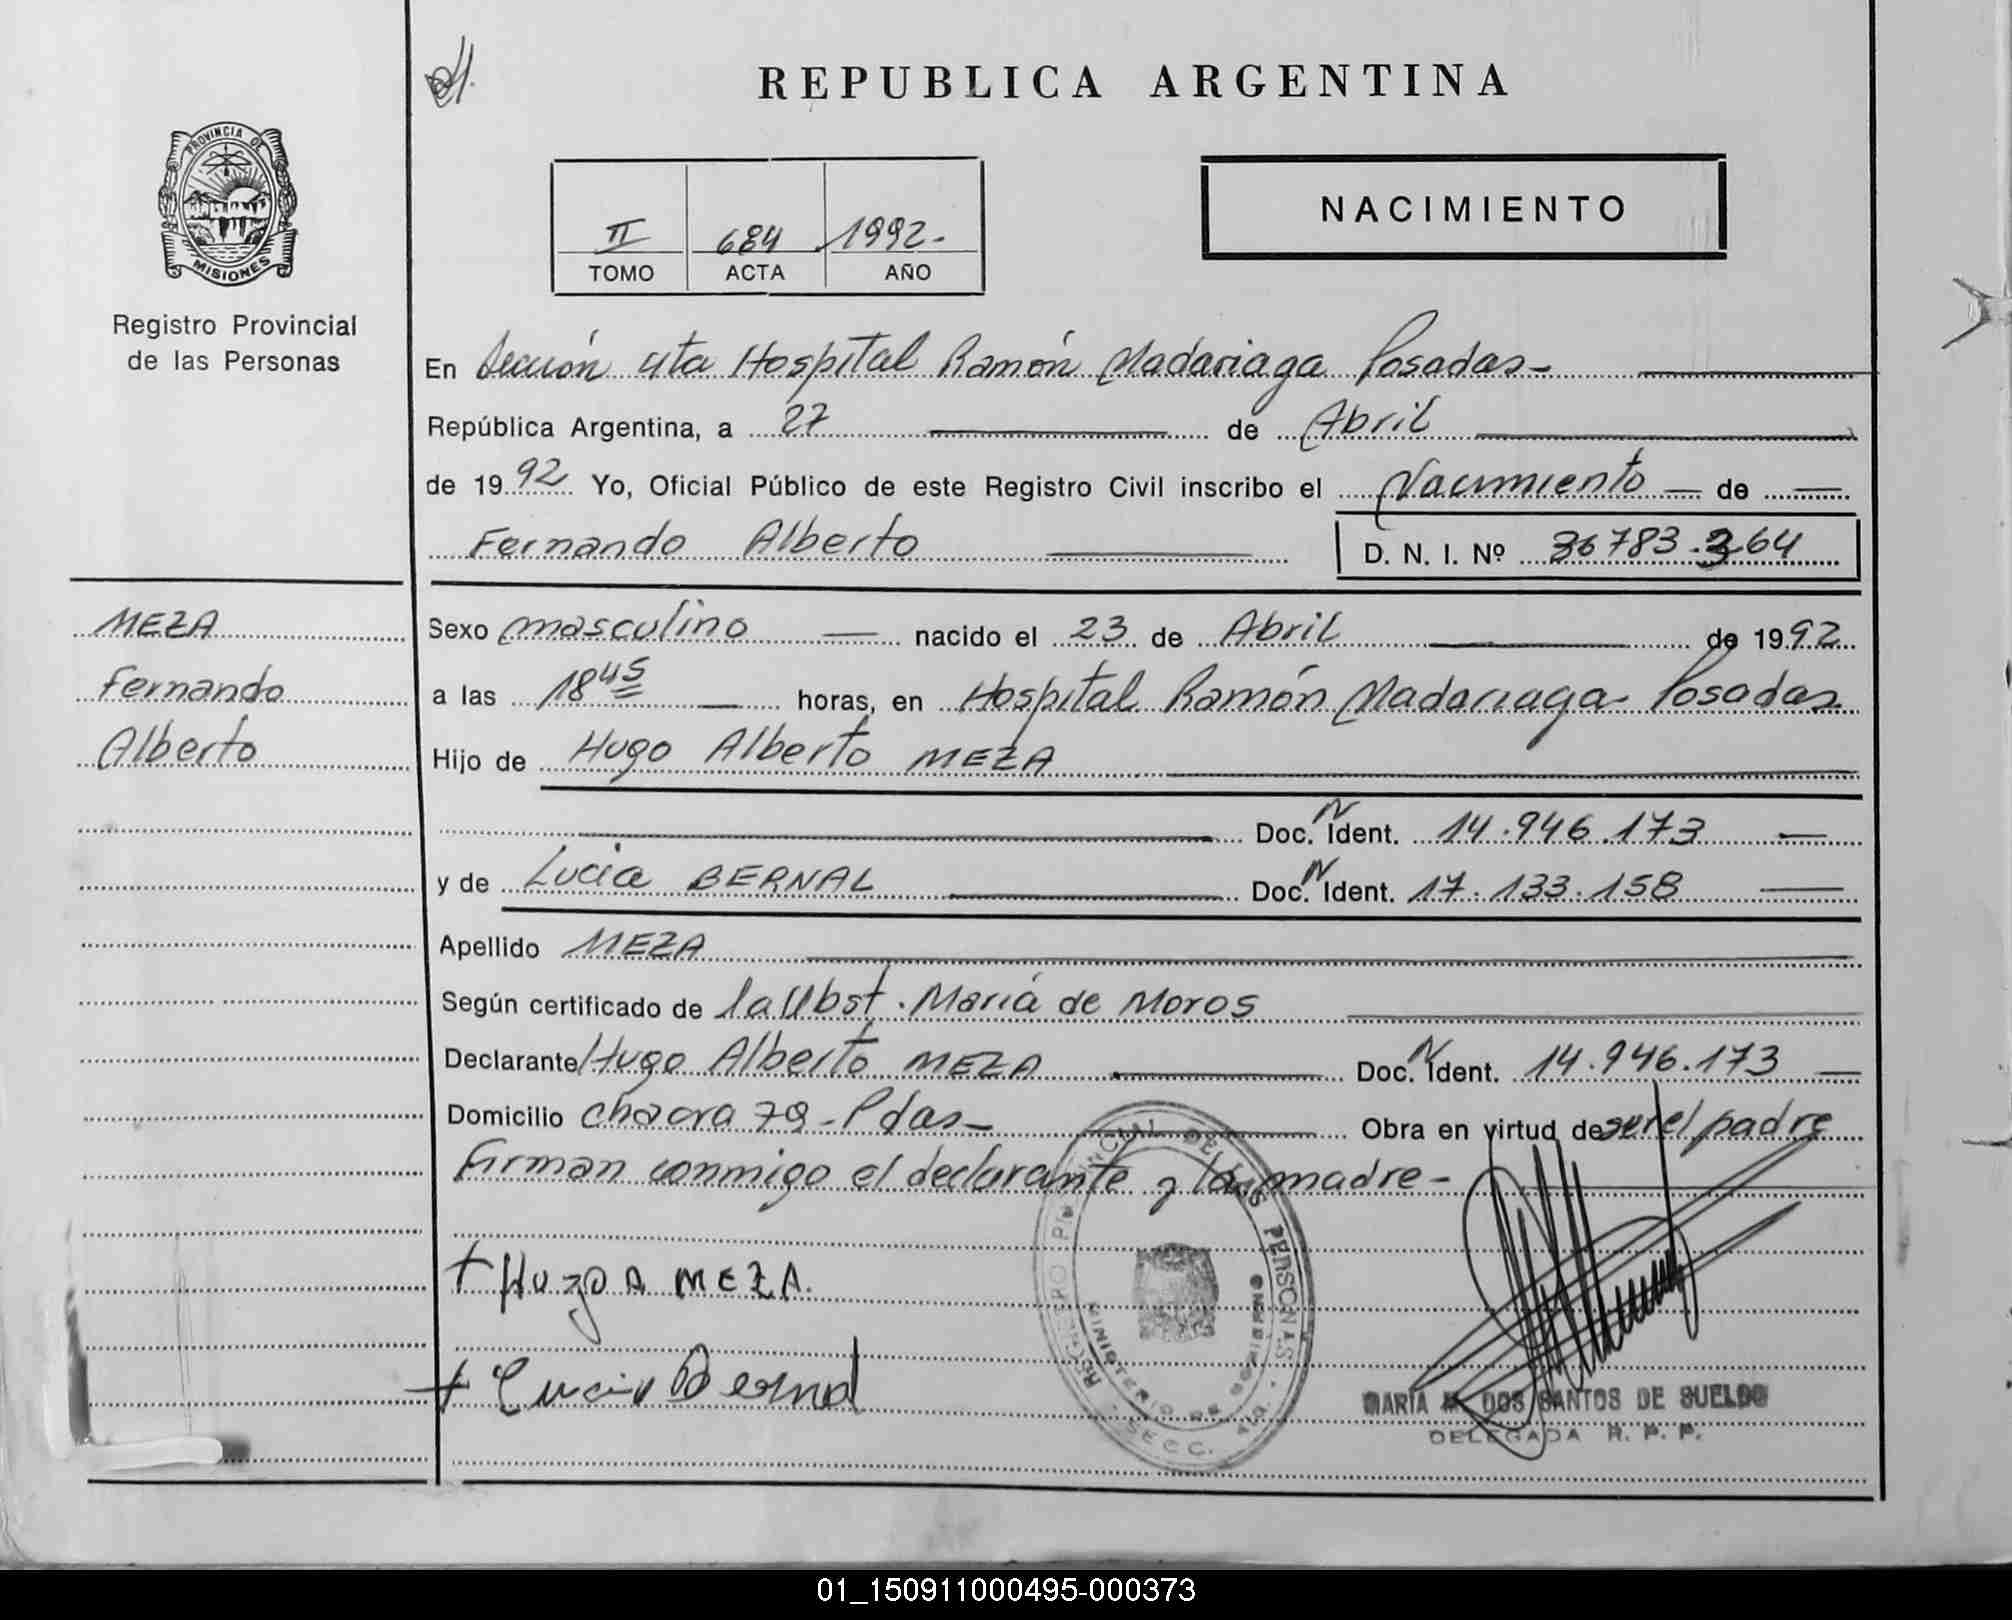 REPUBLICA ARGENTINA
PROVINCIA DE
MISIONES
Registro Provincial
de las Personas
II 684 1992-
TOMO ACTA AÑO
NACIMIENTO
En Sección 4ta Hospital Ramón Madariaga Posadas-
República Argentina, a 27 de Abril
de 1992 Yo, Oficial Público de este Registro Civil inscribo el Nacimiento de
Fernando Alberto D. N. I. Nº 36783.364
MEZA
Fernando
Alberto
Sexo masculino nacido el 23 de Abril de 1992
a las 18 45 horas, en Hospital Ramón Madariaga Posadas
Hijo de Hugo Alberto MEZA
Doc. N Ident. 14.946.173
y de Lucia BERNAL Doc. N Ident. 17.133.158
Apellido MEZA
Según certificado de la Obst. María de Moros
Declarante Hugo Alberto MEZA Doc. N Ident. 14.946.173
Domicilio chacra 79-Pdas- Obra en virtud de ser el padre
Firman conmigo el declarante y la madre-
+ Hugo A MEZA.
+ Lucia Bernal
REGISTRO PROVINCIAL DE LAS PERSONAS
MINISTERIO DE GOBIERNO
SECC. 4ta.
MARIA M. DOS SANTOS DE SUELDO
DELEGADA R. P. P.
01_150911000495-000373